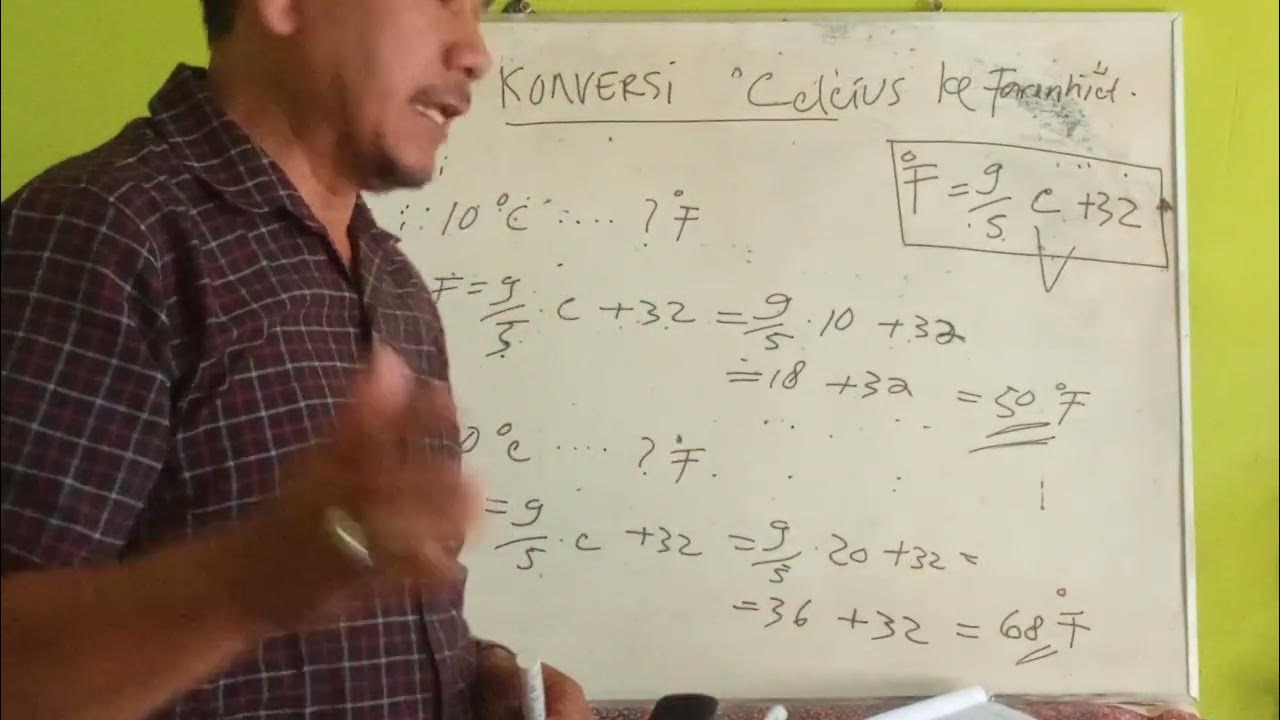 KONVERSI °Celcius ke Farenhiet.
°F = 9/5 C + 32
10 °C .... ? °F
F = 9/5 · C + 32 = 9/5 · 10 + 32
= 18 + 32 = 50 °F
0 °C .... ? °F.
= 9/5 · C + 32 = 9/5 · 20 + 32 =
= 36 + 32 = 68 °F